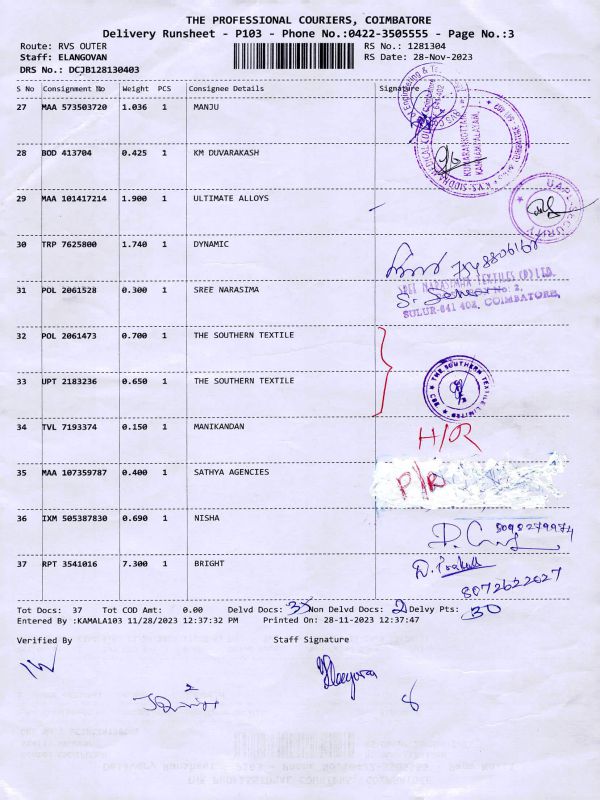 THE PROFESSIONAL COURIERS, COIMBATORE
Delivery Runsheet - P103 - Phone No.:0422-3505555 - Page No.:3
Route: RVS OUTER RS No.: 1281304
Staff: ELANGOVAN RS Date: 28-Nov-2023
DRS No.: DCJB128130403
S No Consignment No Weight PCS Consignee Details Signature
27 MAA 573503720 1.036 1 MANJU
28 BOD 413704 0.425 1 KM DUVARAKASH
29 MAA 101417214 1.900 1 ULTIMATE ALLOYS
30 TRP 7625800 1.740 1 DYNAMIC
31 POL 2061528 0.300 1 SREE NARASIMA
SREE NARASIMHA TEXTILES (P) LTD.
SULUR-641 402, COIMBATORE.
32 POL 2061473 0.700 1 THE SOUTHERN TEXTILE
33 UPT 2183236 0.650 1 THE SOUTHERN TEXTILE
THE SOUTHERN TEXTILE LIMITED
34 TVL 7193374 0.150 1 MANIKANDAN H/R
35 MAA 107359787 0.400 1 SATHYA AGENCIES P/R
36 IXM 505387830 0.690 1 NISHA
37 RPT 3541016 7.300 1 BRIGHT D. Prakash
8072622627
Tot Docs: 37 Tot COD Amt: 0.00 Delvd Docs: Non Delvd Docs: 2 Delvy Pts: 30
Entered By :KAMALA103 11/28/2023 12:37:32 PM Printed On: 28-11-2023 12:37:47
Verified By Staff Signature